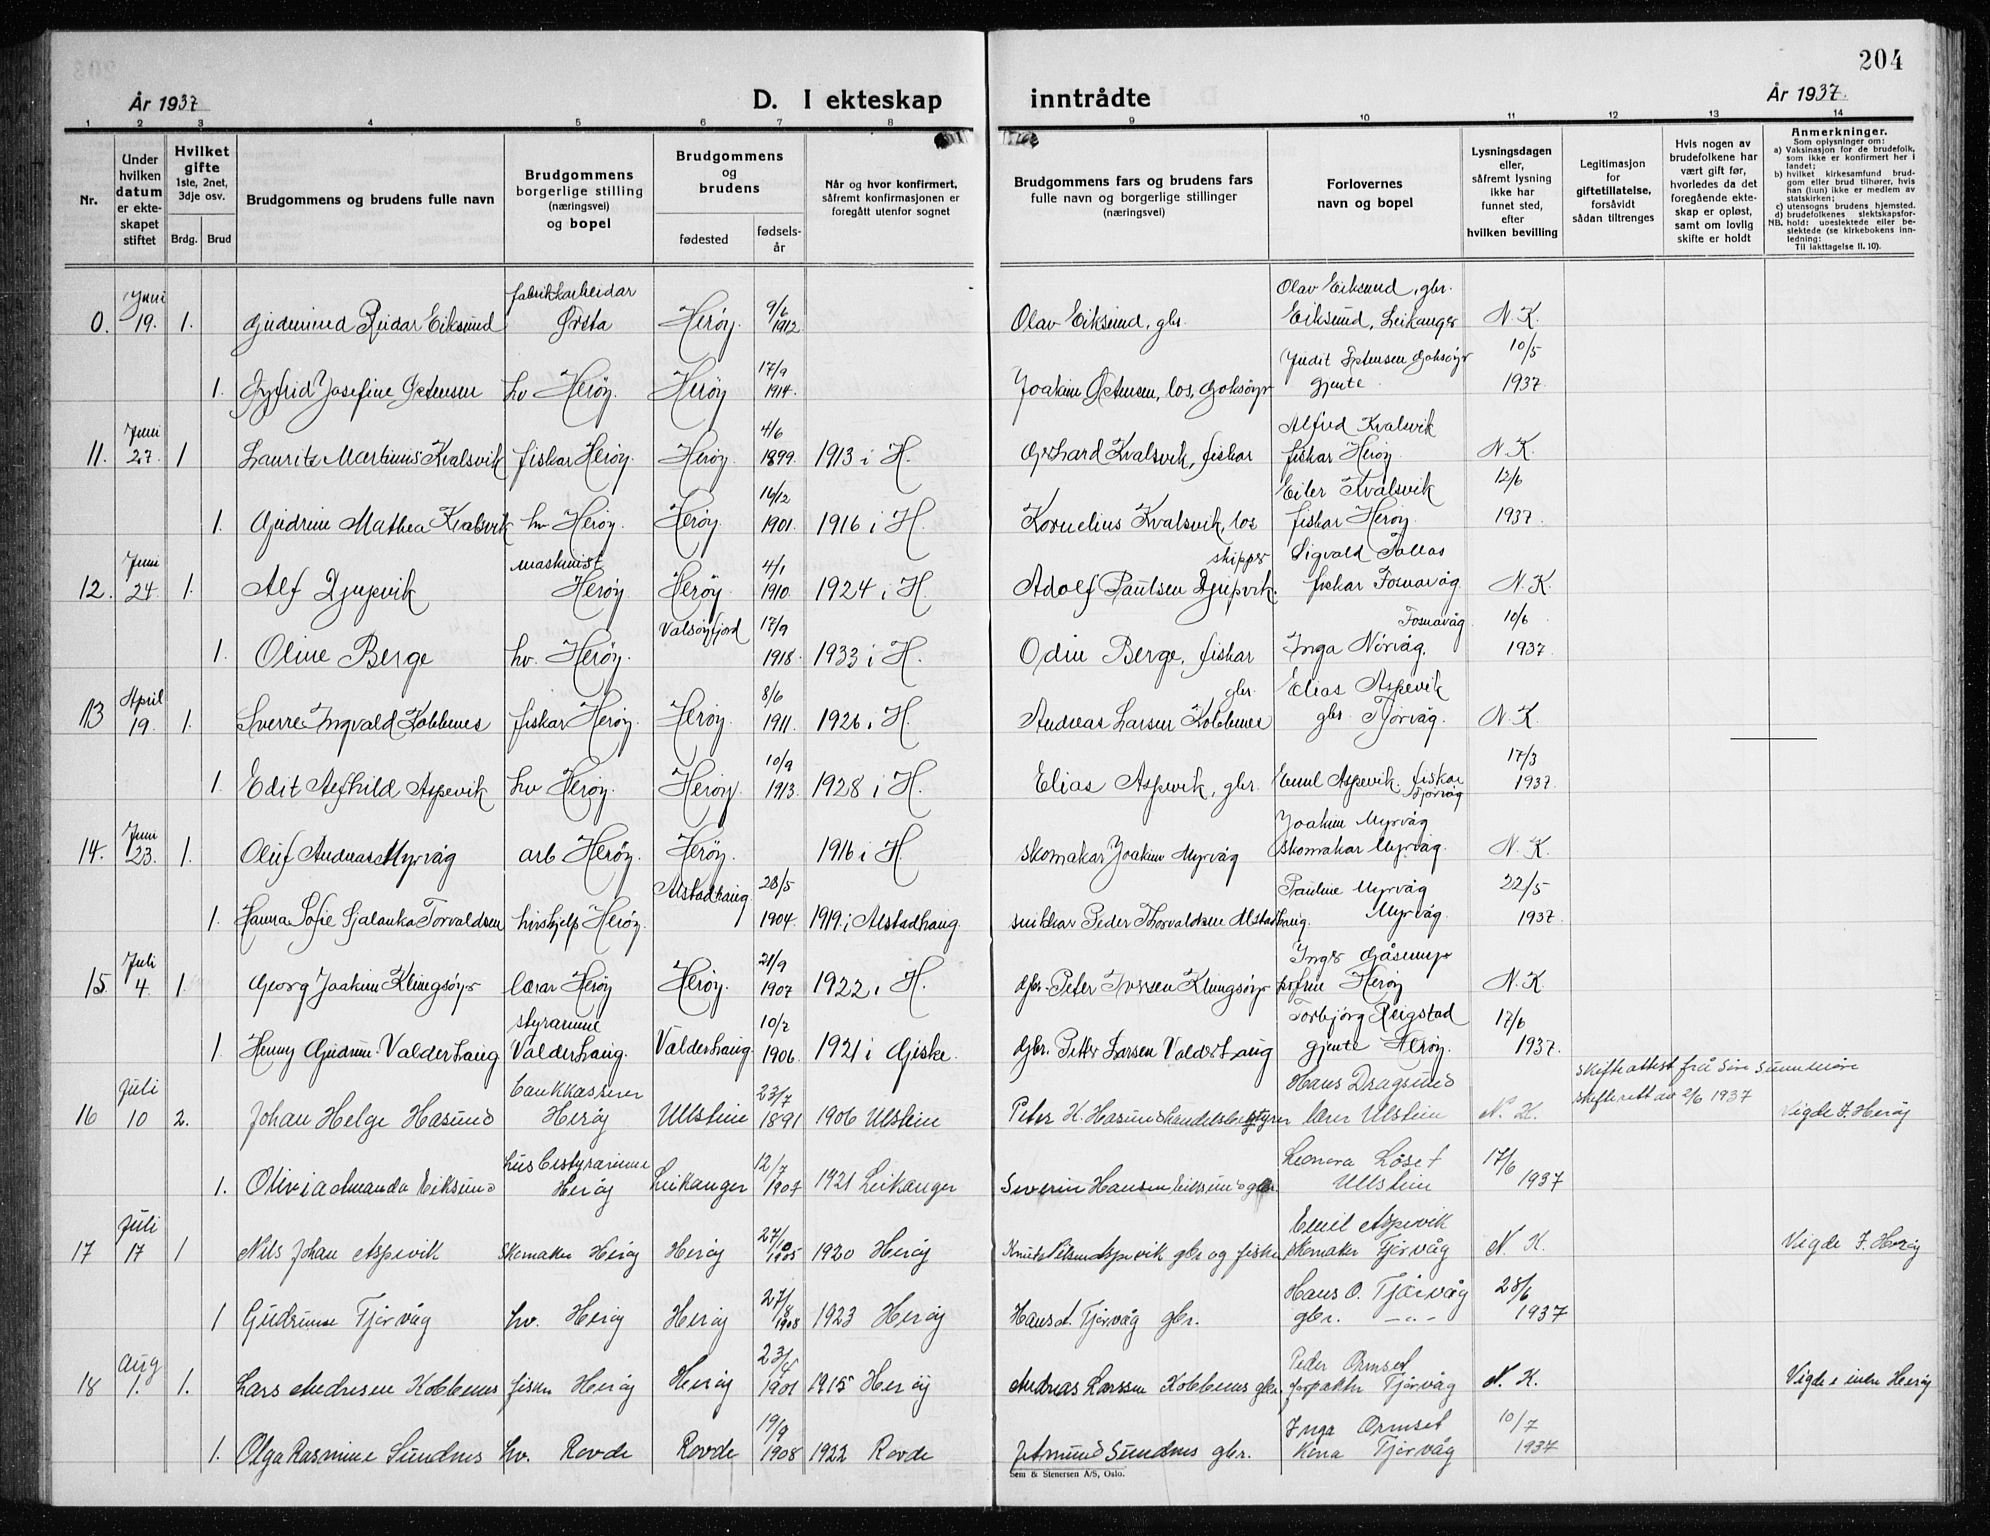 204
År 1937
D. I ekteskap inntrådte
År 1937.
1 2 3 4 5 6 7 8 9 10 11 12 13 14
Nr.
Under hvilken datum er ekteskapet stiftet
Hvilket gifte 1ste, 2net, 3dje osv.
Brdg. Brud
Brudgommens og brudens fulle navn
Brudgommens borgerlige stilling (næringsvei) og bopel
Brudgommens og brudens
fødested
fødselsår
Når og hvor konfirmert, såfremt konfirmasjonen er foregått utenfor sognet
Brudgommens fars og brudens fars fulle navn og borgerlige stillinger (næringsvei)
Forlovernes navn og bopel
Lysningsdagen eller, såfremt lysning ikke har funnet sted, efter hvilken bevilling
Legitimasjon for giftetillatelse, forsåvidt sådan tiltrenges
Hvis nogen av brudefolkene har vært gift før, hvorledes da det foregående ekteskap er opløst, samt om lovlig skifte er holdt
Anmerkninger.
Som oplysninger om:
a) Vaksinasjon for de brudefolk, som ikke er konfirmert her i landet;
b) hvilket kirkesamfund brudgom eller brud tilhører, hvis han (hun) ikke er medlem av statskirken;
c) utensogns brudens hjemsted.
d) brudefolkenes slektskapsforhold: ubeslektede eller beslektede (se kirkebokens innledning:
NB.
Til iakttagelse II. 10).
Juni fabrikkarbeidar Olav Eiksund, gbr.
0. 19. 1. Gudmund Reidar Eiksund Ørsta Herøy. 9/6 1912 Olav Eiksund, gbr. Eiksund, Leikanger N. K.
1. Josefine hv Herøy. Herøy 17/9 1914. Joakim los, Goksøyr gjente. 10/5 1937.
Juni Alfred Kvalsvik
11. 27. 1 Laurits Martinus Kvalsvik fiskar Herøy. Herøy 4/6 1899. 1913 i H. Gerhard Kvalsvik, fiskar fiskar Herøy. N. K.
Eiler Kvalsvik 12/6
1. Gudrun Mathea Kvalsvik hv Herøy. Herøy. 16/12 1901. 1916 i H. Kornelius Kvalsvik, los fiskar Herøy. 1937.
Juni maskinist skipper
12. 24. 1. Alf Djupvik Herøy. Herøy. 4/1 1910. 1924 i H. Adolf Paulsen Djupvik. fiskar Fosnavåg. N. K.
Valsøyfjord Fosnavåg 10/6
1. Oline Berge hv. Herøy. 17/9 1918. 1933 i H. Odin Berge, fiskar Inga Nørvåg. 1937.
April gbr. Elias Aspevik
13 19. 1. Sverre Ingvald Kobbenes fiskar Herøy. Herøy. 8/6 1911. 1926 i H. Andreas Larsen Kobbenes gbr. Tjørvåg. N. K.
1. Edit Alfhild Aspevik hv Herøy. Herøy. 10/9 1913. 1928 i H. Elias Aspevik, gbr. Emil Aspevik fiskar Tjørvåg 17/3 1937.
Juni Joakim Myrvåg
14. 23. 1. Oluf Andreas Myrvåg arb Herøy. Herøy. 1916 i H skomakar Joakim Myrvåg skomakar Myrvåg. N. K.
Alstadhaug Pauline Myrvåg 22/5
1. Hanna Sofie Torvaldsen hushjelp Herøy. 28/5 1904. 1919 i Alstadhaug. snikkar Peder Thorvaldsen Alstadhaug. Myrvåg. 1937.
Juli
15. 4. 1. Georg Joakim Klungsøyr lærar Herøy Herøy. 21/9 1907 1922 i H. gbr. Peter Iversen Klungsøyr Herøy N. K.
styrarinne Torbjørg Reigstad 17/6
1. Henny Gudrun Valderhaug Valderhaug. Valderhaug. 10/2 1906. 1921 i Giske. gbr. Petter Larsen Valderhaug gjente Herøy. 1937.
Juli bankkasserer Hans Dragsund skifteattest frå Søre Sunnmøre
16 10 2. Johan Helge Hasund Herøy Ullstein 23/7 1891 1906 Ulstein Peter K. Hasund handelsbestyrer lærer Ulstein N. K. skifterett av 2/6 1937 Vigde I. Herøy
husbestyrarinne Leonora Løset 17/6
1. Olivia Amanda Eiksund Herøy Leikanger 12/7 1907 1921 Leikanger Severin Hansen Eiksund gbr. Ullstein 1937
Juli Emil Aspevik
17 17 1 Nils Johan Aspevik skomaker Herøy Herøy 1905 1920 Herøy Knut Aspevik gbr og fisker skomaker Tjørvåg N. K. Vigde I. Herøy
Hans O. Tjørvåg 28/6
1 Gudrun Tjørvåg hv. Herøy Herøy 27/8 1908 1923 Herøy Hans Tjørvåg gbr. gbr. —"— 1937
Aug Peder Ormset
18 1. 1. Lars Andresen Kobbenes fisker Herøy Herøy 23/4 1901 1915 Herøy Andreas Larssen Kobbenes gbr. forpakter Tjørvåg N. K. Vigde i indre Herøy
Inga Ormset 10/7
1. Olga Rasmine Sundnes hv. Rovde Rovde 19/9 1908 1922 Rovde Sundnes gbr. Kona Tjørvåg 1937
Sem & Stenersen A/S, Oslo.